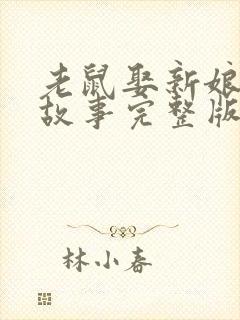 老鼠娶新娘
故事完整版
林小春